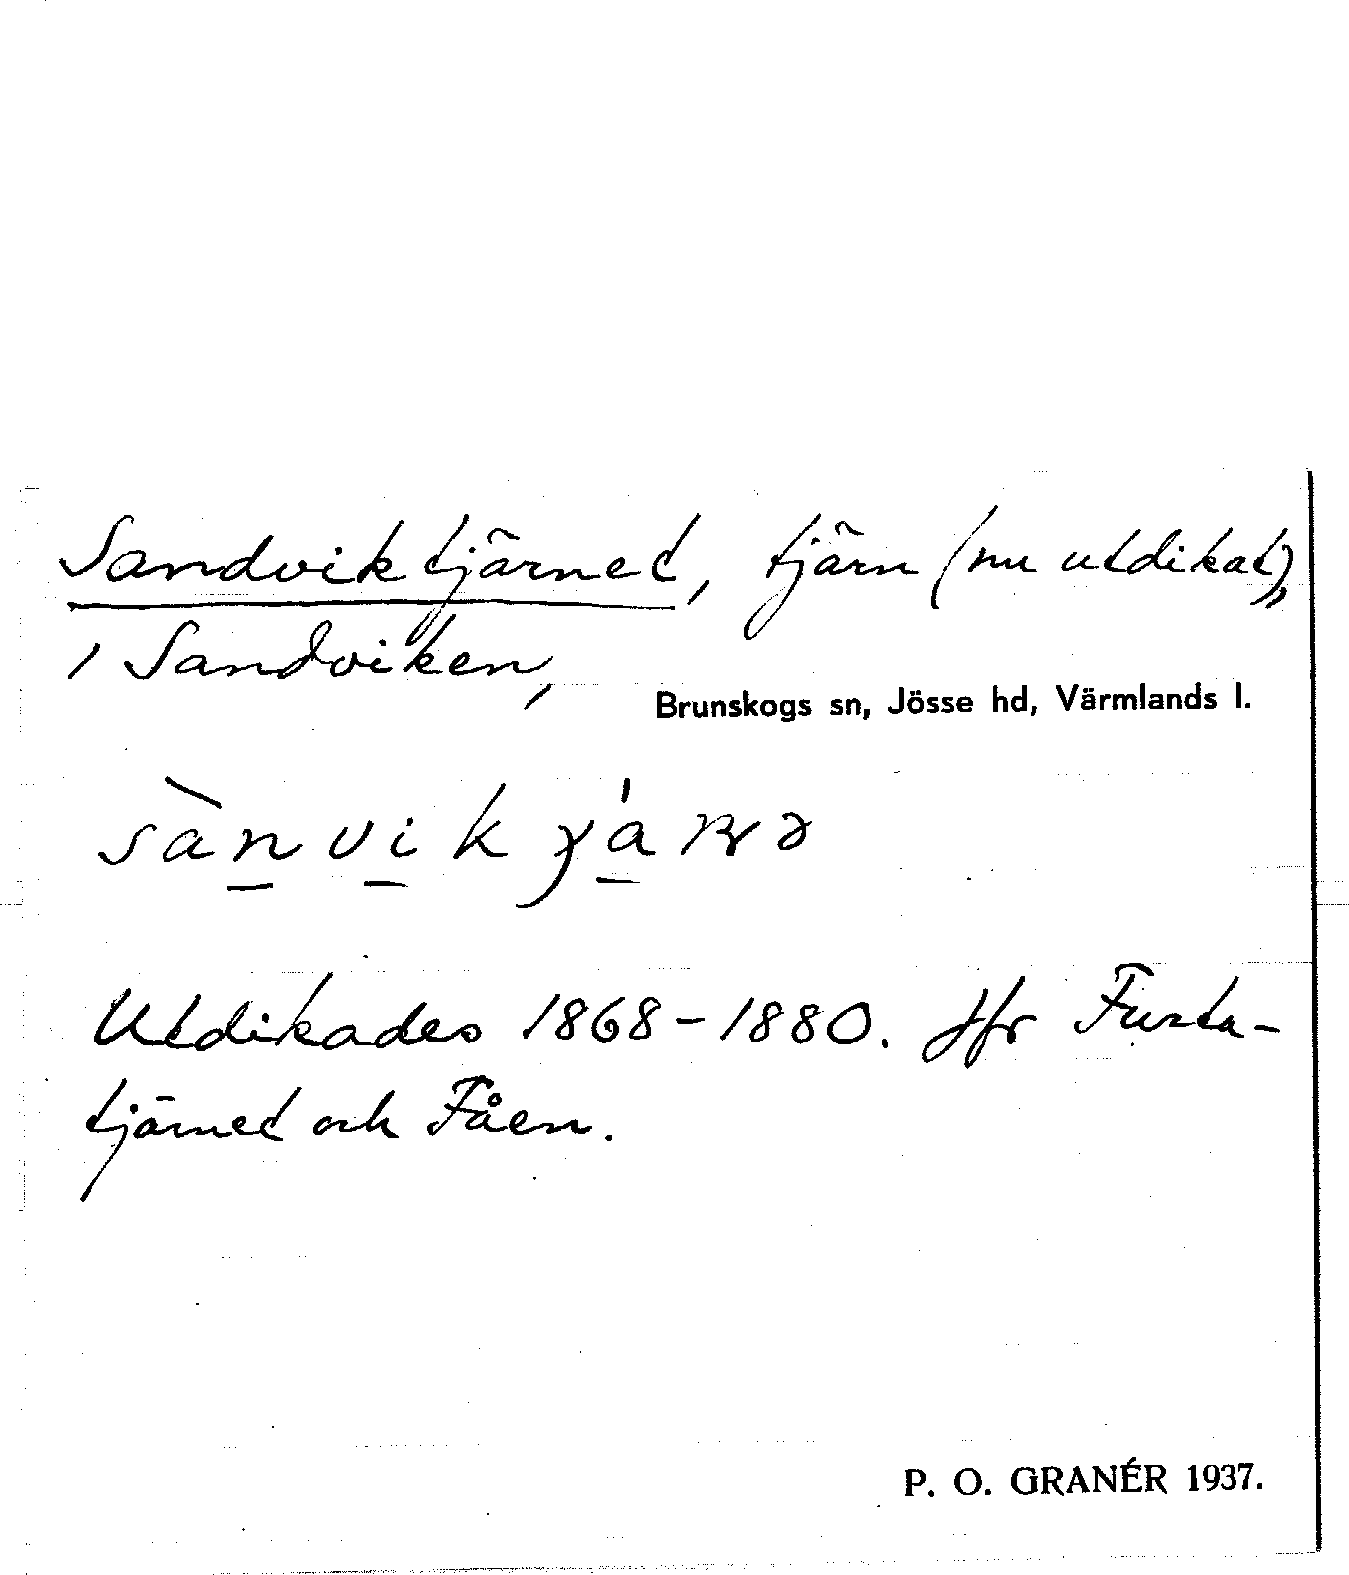 Sandviktjärnet, tjärn (nu utdikat),
i Sandviken,
Brunskogs sn, Jösse hd, Värmlands l.
Utdikades 1868-1880. Jfr Fursta-
tjärnet och Fåen.
P. O. GRANÉR 1937.